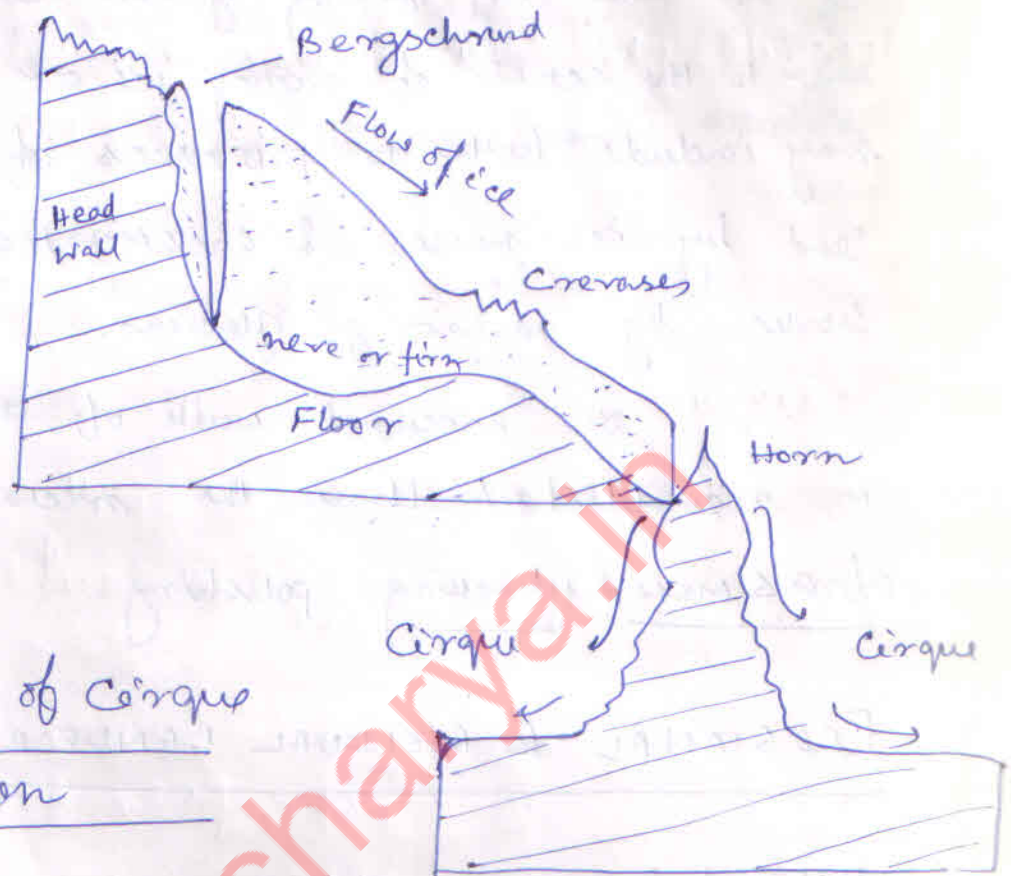 Bergschrund
Flow of ice
Head
Wall
Crevases
neve or firn
Floor
Horn
Cirque
Cirque
of Cirque
on
charya.in